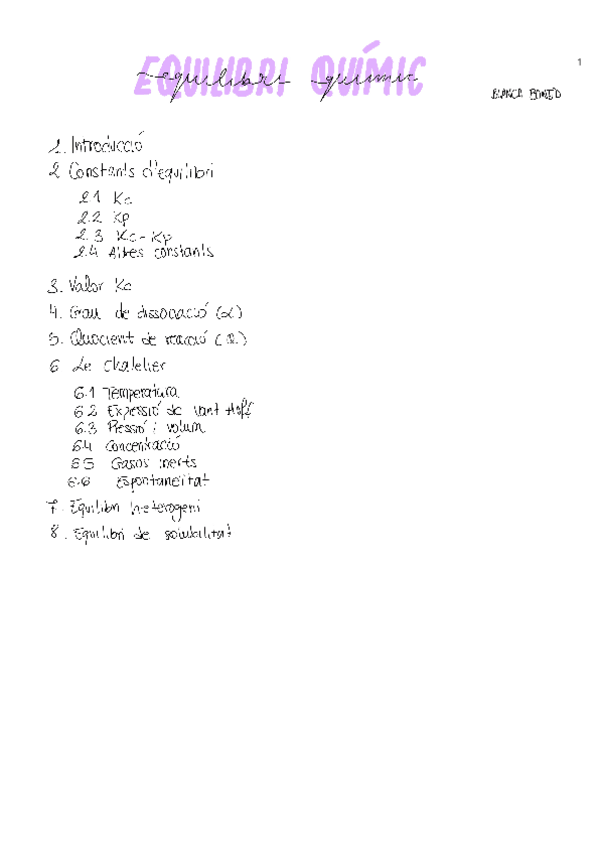 EQUILIBRI QUÍMIC
equilibri químic
1
1. Introducció
2 Constants d'equilibri
2.1 Kc
2.2 Kp
2.3 Kc-Kp
2.4 Altres constants
3. Valor Kc
4. Grau de dissociació (α)
5. Quocient de reacció (Q.)
6 Le Chatelier
6.1 Temperatura
6.2 Expressió de Vant Hoff
6.3 Pressió i volum
6.4 Concentració
6.5 Gasos inerts
6.6 Espontaneïtat
7. Equilibri heterogeni
8. Equilibri de solubilitat